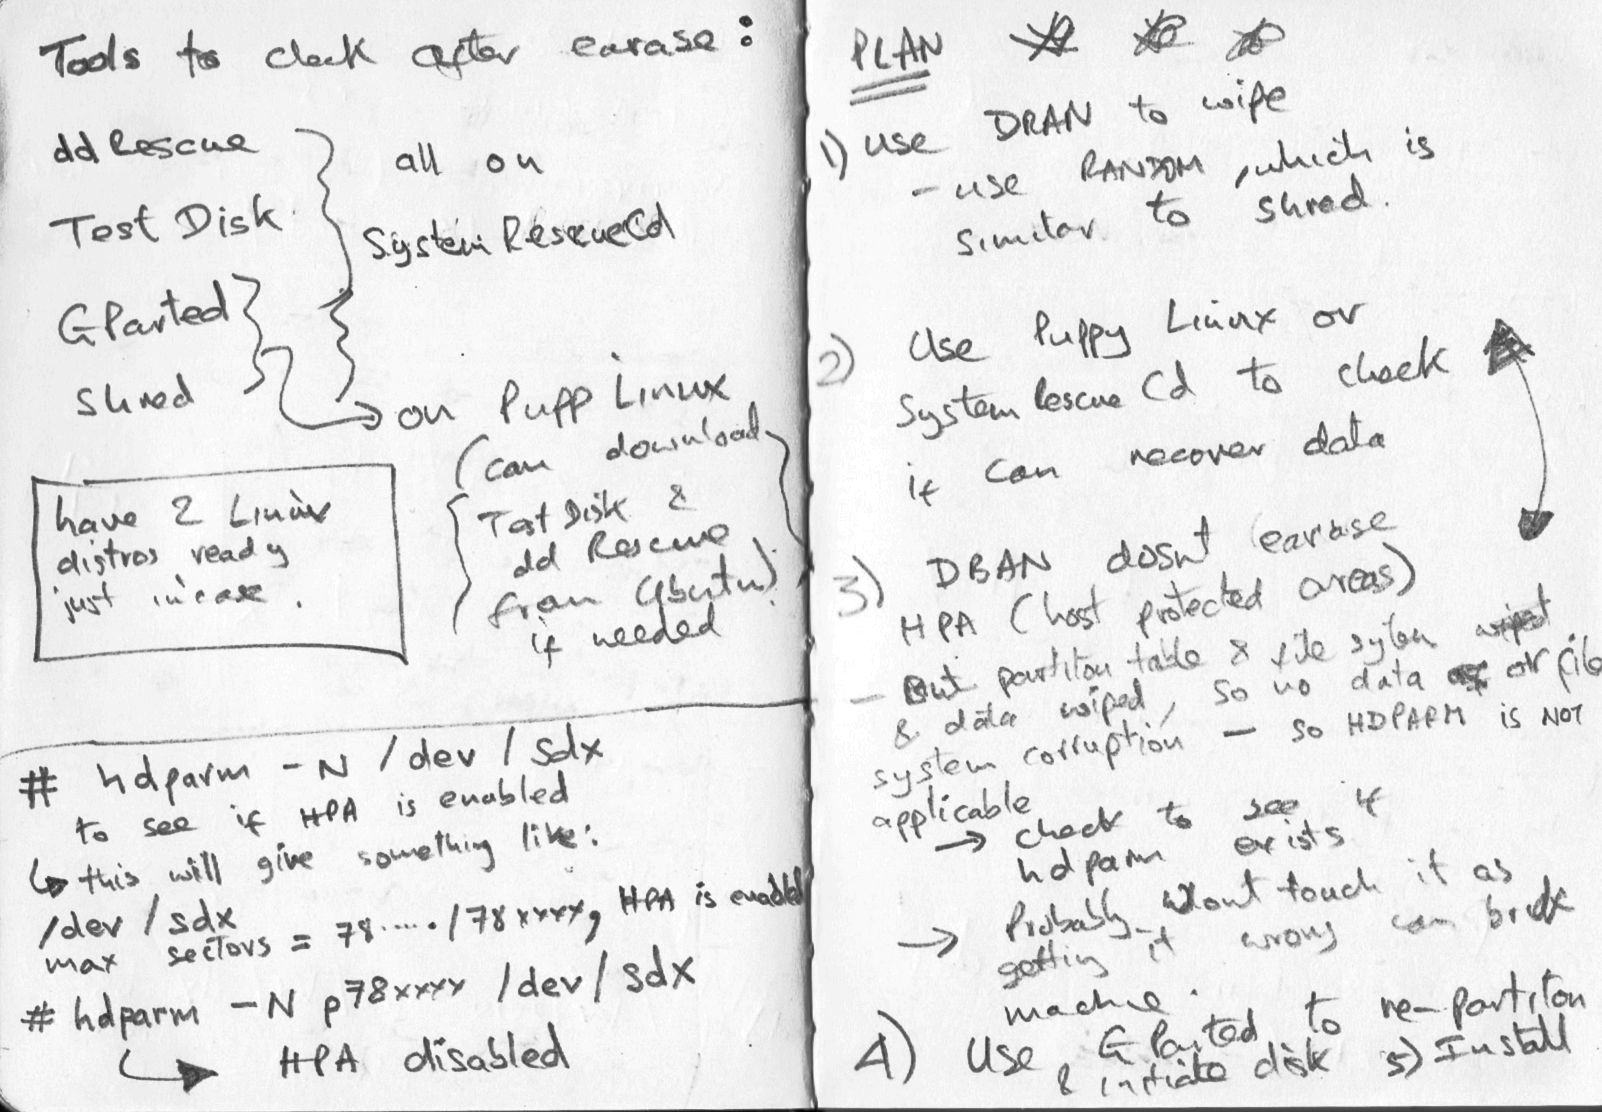 Tools to check after earase:
dd Rescue
Test Disk
GParted
Shred
all on
System RescueCd
on Pupp Linux
(can download
Test Disk &
dd Rescue
from Ubuntu)
if needed
have 2 Linux
distros ready
just incase.
# hdparm -N /dev/sdx
to see if HPA is enabled
↳ this will give something like:
/dev/sdx
max sectors = 78...../78xxxx, HPA is enabled
# hdparm -N p78xxxx /dev/sdx
↳ HPA disabled
PLAN
1) Use DBAN to wipe
- use RANDOM, which is
similar to shred.
2) Use Puppy Linux or
System Rescue Cd to check
if can recover data
3) DBAN dosnt earase
HPA (host protected areas)
- But partiton table & file sytem wiped
& data wiped, so no data or file
system corruption - so HDPARM is NOT
applicable
→ check to see if
hdparm exists
→ Probably wont touch it as
getting it wrong can brick
machine.
4) Use GParted to re-partiton
& initiate disk
5) Install